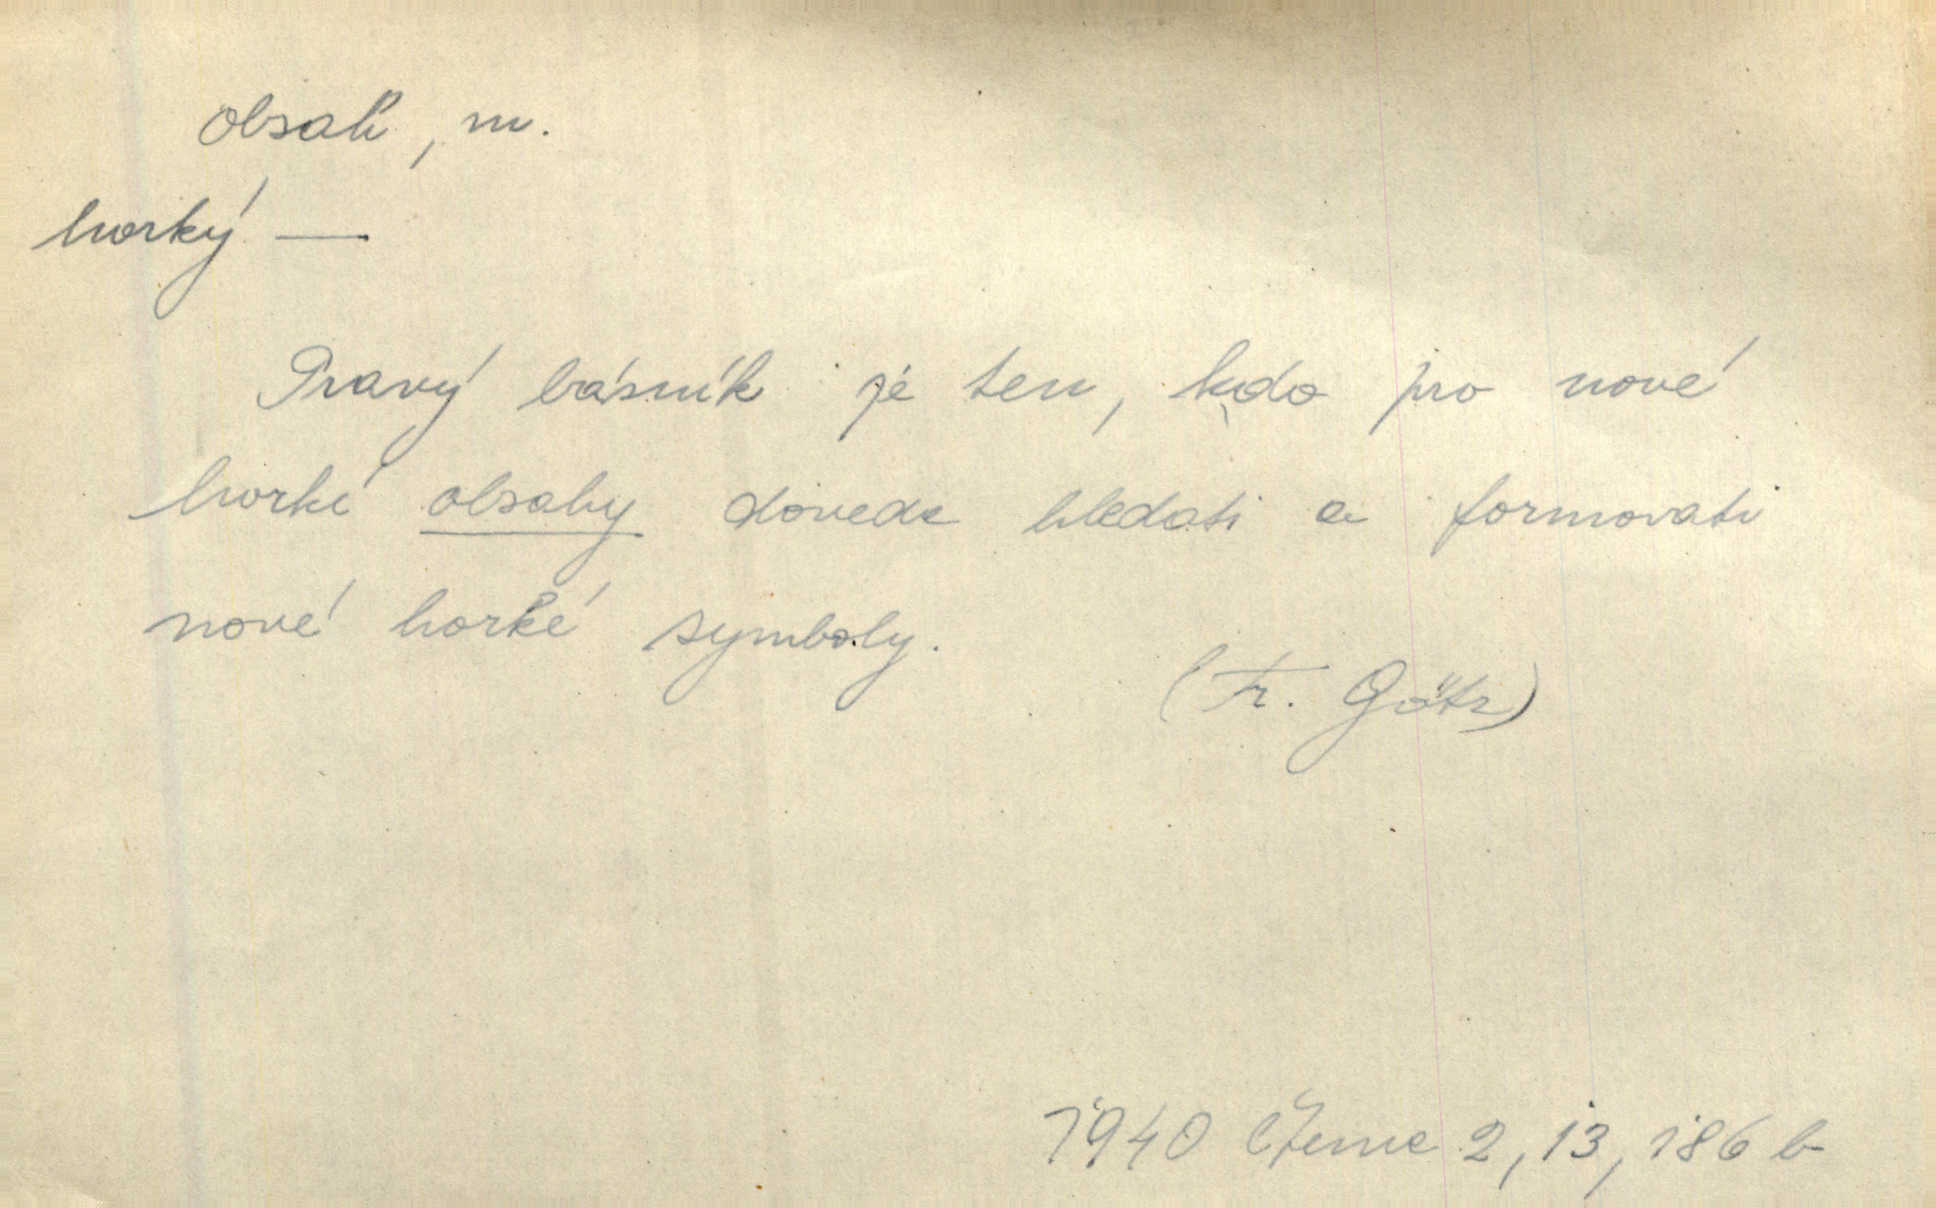 obsah, m.
horký —
Pravý básník je ten, kdo pro nové
horké obsahy dovede hledati a formovati
nové horké symboly.
(Fr. Götz)
1940 Čteme 2, 13, 186 b